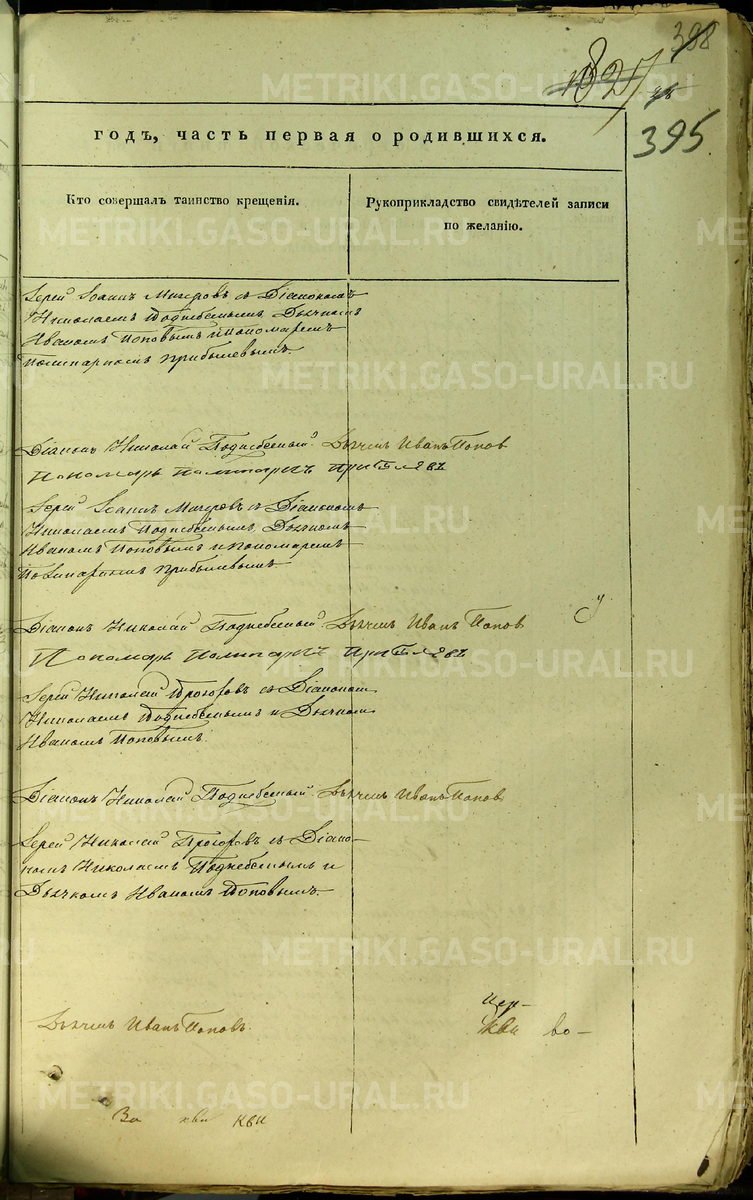 398
1827
395
годъ, часть первая о родившихся.
Кто совершалъ таинство крещенія.
Рукоприкладство свидѣтелей записи
по желанію.
Іерей Іоаннъ с Діакономъ
Николаемъ Поднебеснымъ Дьячкомъ
Иваномъ Поповымъ и пономаремъ
Поликарпомъ Прибылевымъ.
Діаконъ Николай Поднебесный. Дьячекъ Иванъ Попов
Пономарь Поликарпъ Прибылевъ
Іерей Іоаннъ с Діакономъ
Николаемъ Поднебеснымъ, Дьячкомъ
Иваномъ Поповымъ и пономаремъ
Поликарпомъ Прибылевымъ.
Діаконъ Николай Поднебесный. Дьячекъ Иванъ Попов
Пономарь Поликарпъ Прибылевъ
Іерей Николай с Діакономъ
Николаемъ Поднебеснымъ и Дьячкомъ
Иваномъ Поповымъ.
Діаконъ Николай Поднебесный. Дьячекъ Иванъ Попов
Іерей Николай с Діако-
номъ Николаемъ Поднебеснымъ и
Дьячкомъ Иваномъ Поповымъ.
Дьячекъ Иванъ Поповъ.
Цер-
кви во-
За кви кви
METRIKI.GASO-URAL.RU